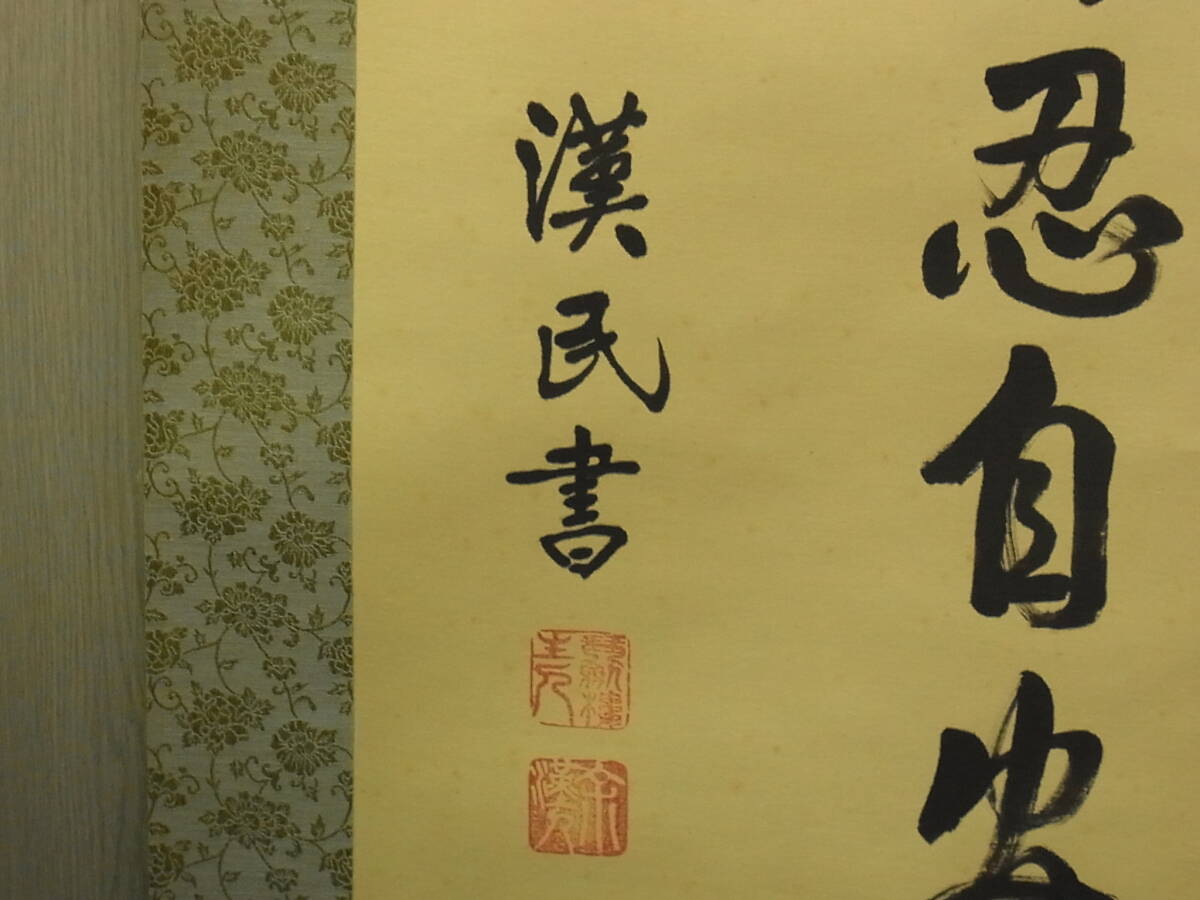 忍自安
漢民書